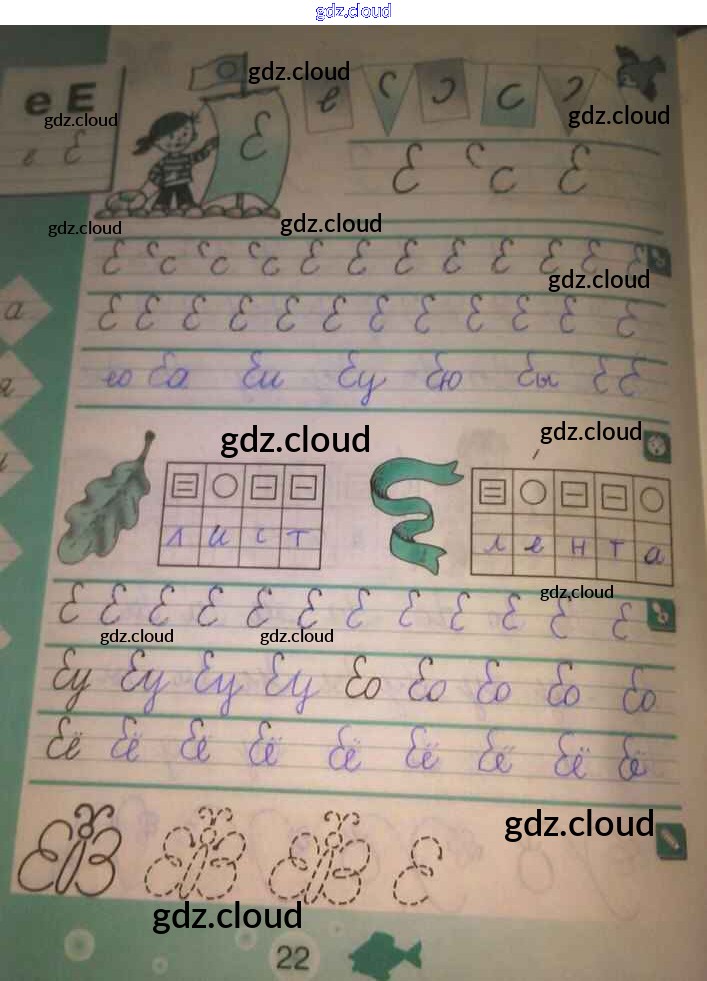 gdz.cloud
gdz.cloud
е Е
gdz.cloud
gdz.cloud
е Е
Е
е
Е Е
gdz.cloud
gdz.cloud
Е Е Е Е Е Е Е Е
gdz.cloud
Е Е Е Е Е Е Е Е Е Е Е Е
а
ео Еа Еи Еу Ею Еы Е Е
я
gdz.cloud
gdz.cloud
л и с т
л е н т а
gdz.cloud
Е Е Е Е Е Е Е Е Е Е Е Е
gdz.cloud
gdz.cloud
Еу Еу Еу Еу Ео Ео Ео Ео Ео
Её Её Её Её Её Её Её Её Её
gdz.cloud
Е
gdz.cloud
22